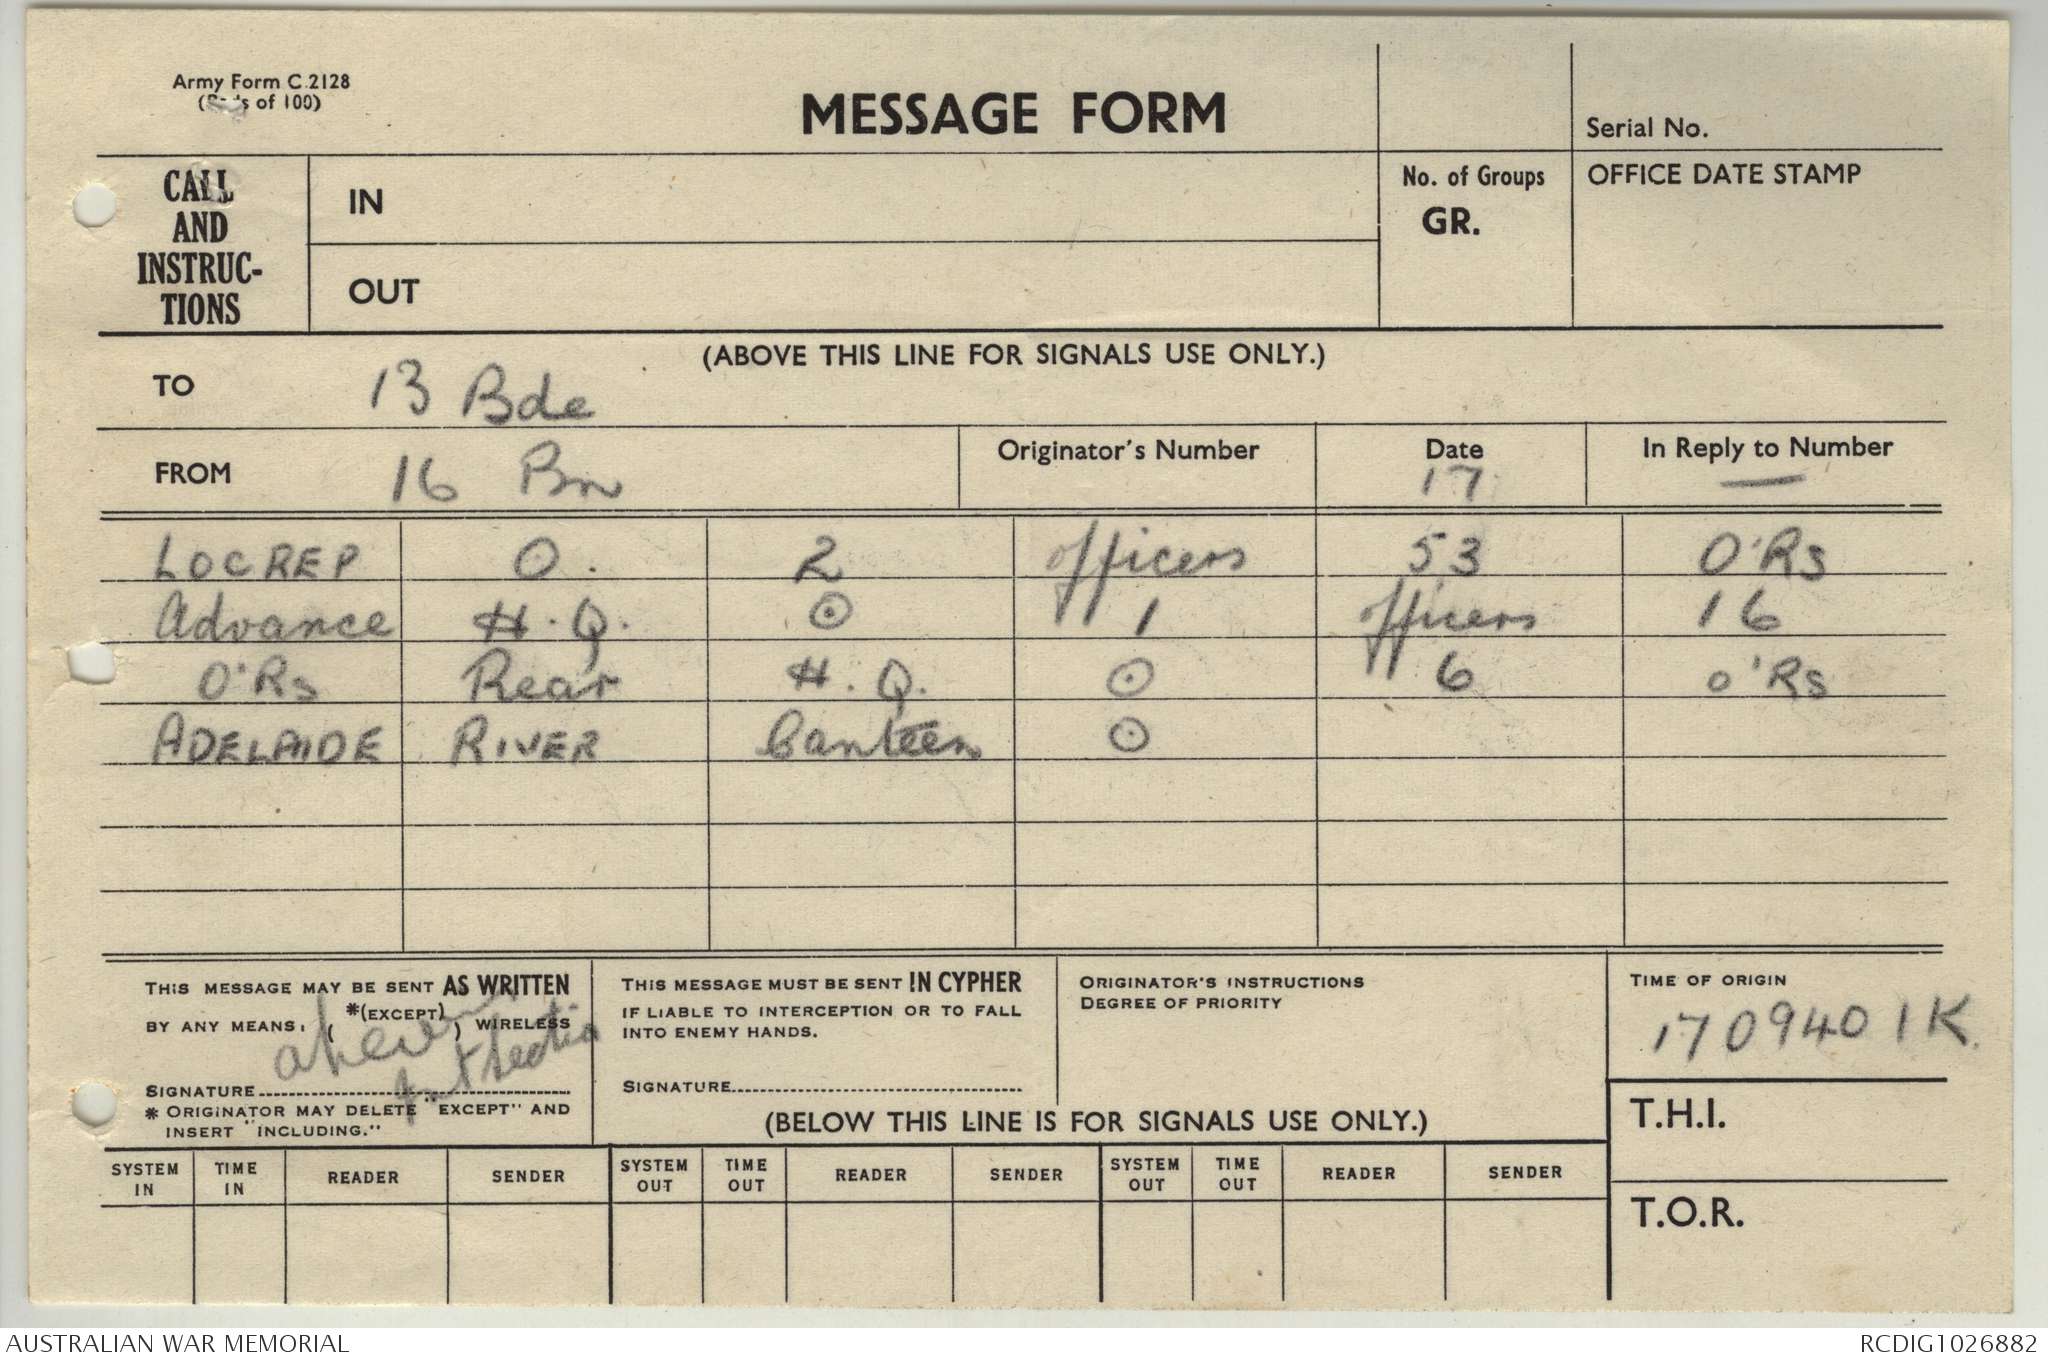 Army Form C.2128
(Pads of 100)
MESSAGE FORM
Serial No.
CALL AND INSTRUC-TIONS
IN
OUT
No. of Groups
GR.
OFFICE DATE STAMP
(ABOVE THIS LINE FOR SIGNALS USE ONLY.)
TO 13 Bde
FROM 16 Bn
Originator's Number
Date 17
In Reply to Number —
LOCREP O. 2 officers 53 O'Rs
Advance H.Q. ⊙ 1 officers 16
O'Rs Rear H.Q. ⊙ 6 O'Rs
ADELAIDE RIVER Canteen ⊙
THIS MESSAGE MAY BE SENT AS WRITTEN
BY ANY MEANS, ( *(EXCEPT) ) WIRELESS
SIGNATURE
* ORIGINATOR MAY DELETE "EXCEPT" AND
INSERT "INCLUDING."
THIS MESSAGE MUST BE SENT IN CYPHER
IF LIABLE TO INTERCEPTION OR TO FALL
INTO ENEMY HANDS.
SIGNATURE
ORIGINATOR'S INSTRUCTIONS
DEGREE OF PRIORITY
TIME OF ORIGIN
170940 1K.
(BELOW THIS LINE IS FOR SIGNALS USE ONLY.)
T.H.I.
T.O.R.
SYSTEM IN TIME IN READER SENDER SYSTEM OUT TIME OUT READER SENDER SYSTEM OUT TIME OUT READER SENDER
AUSTRALIAN WAR MEMORIAL
RCDIG1026882